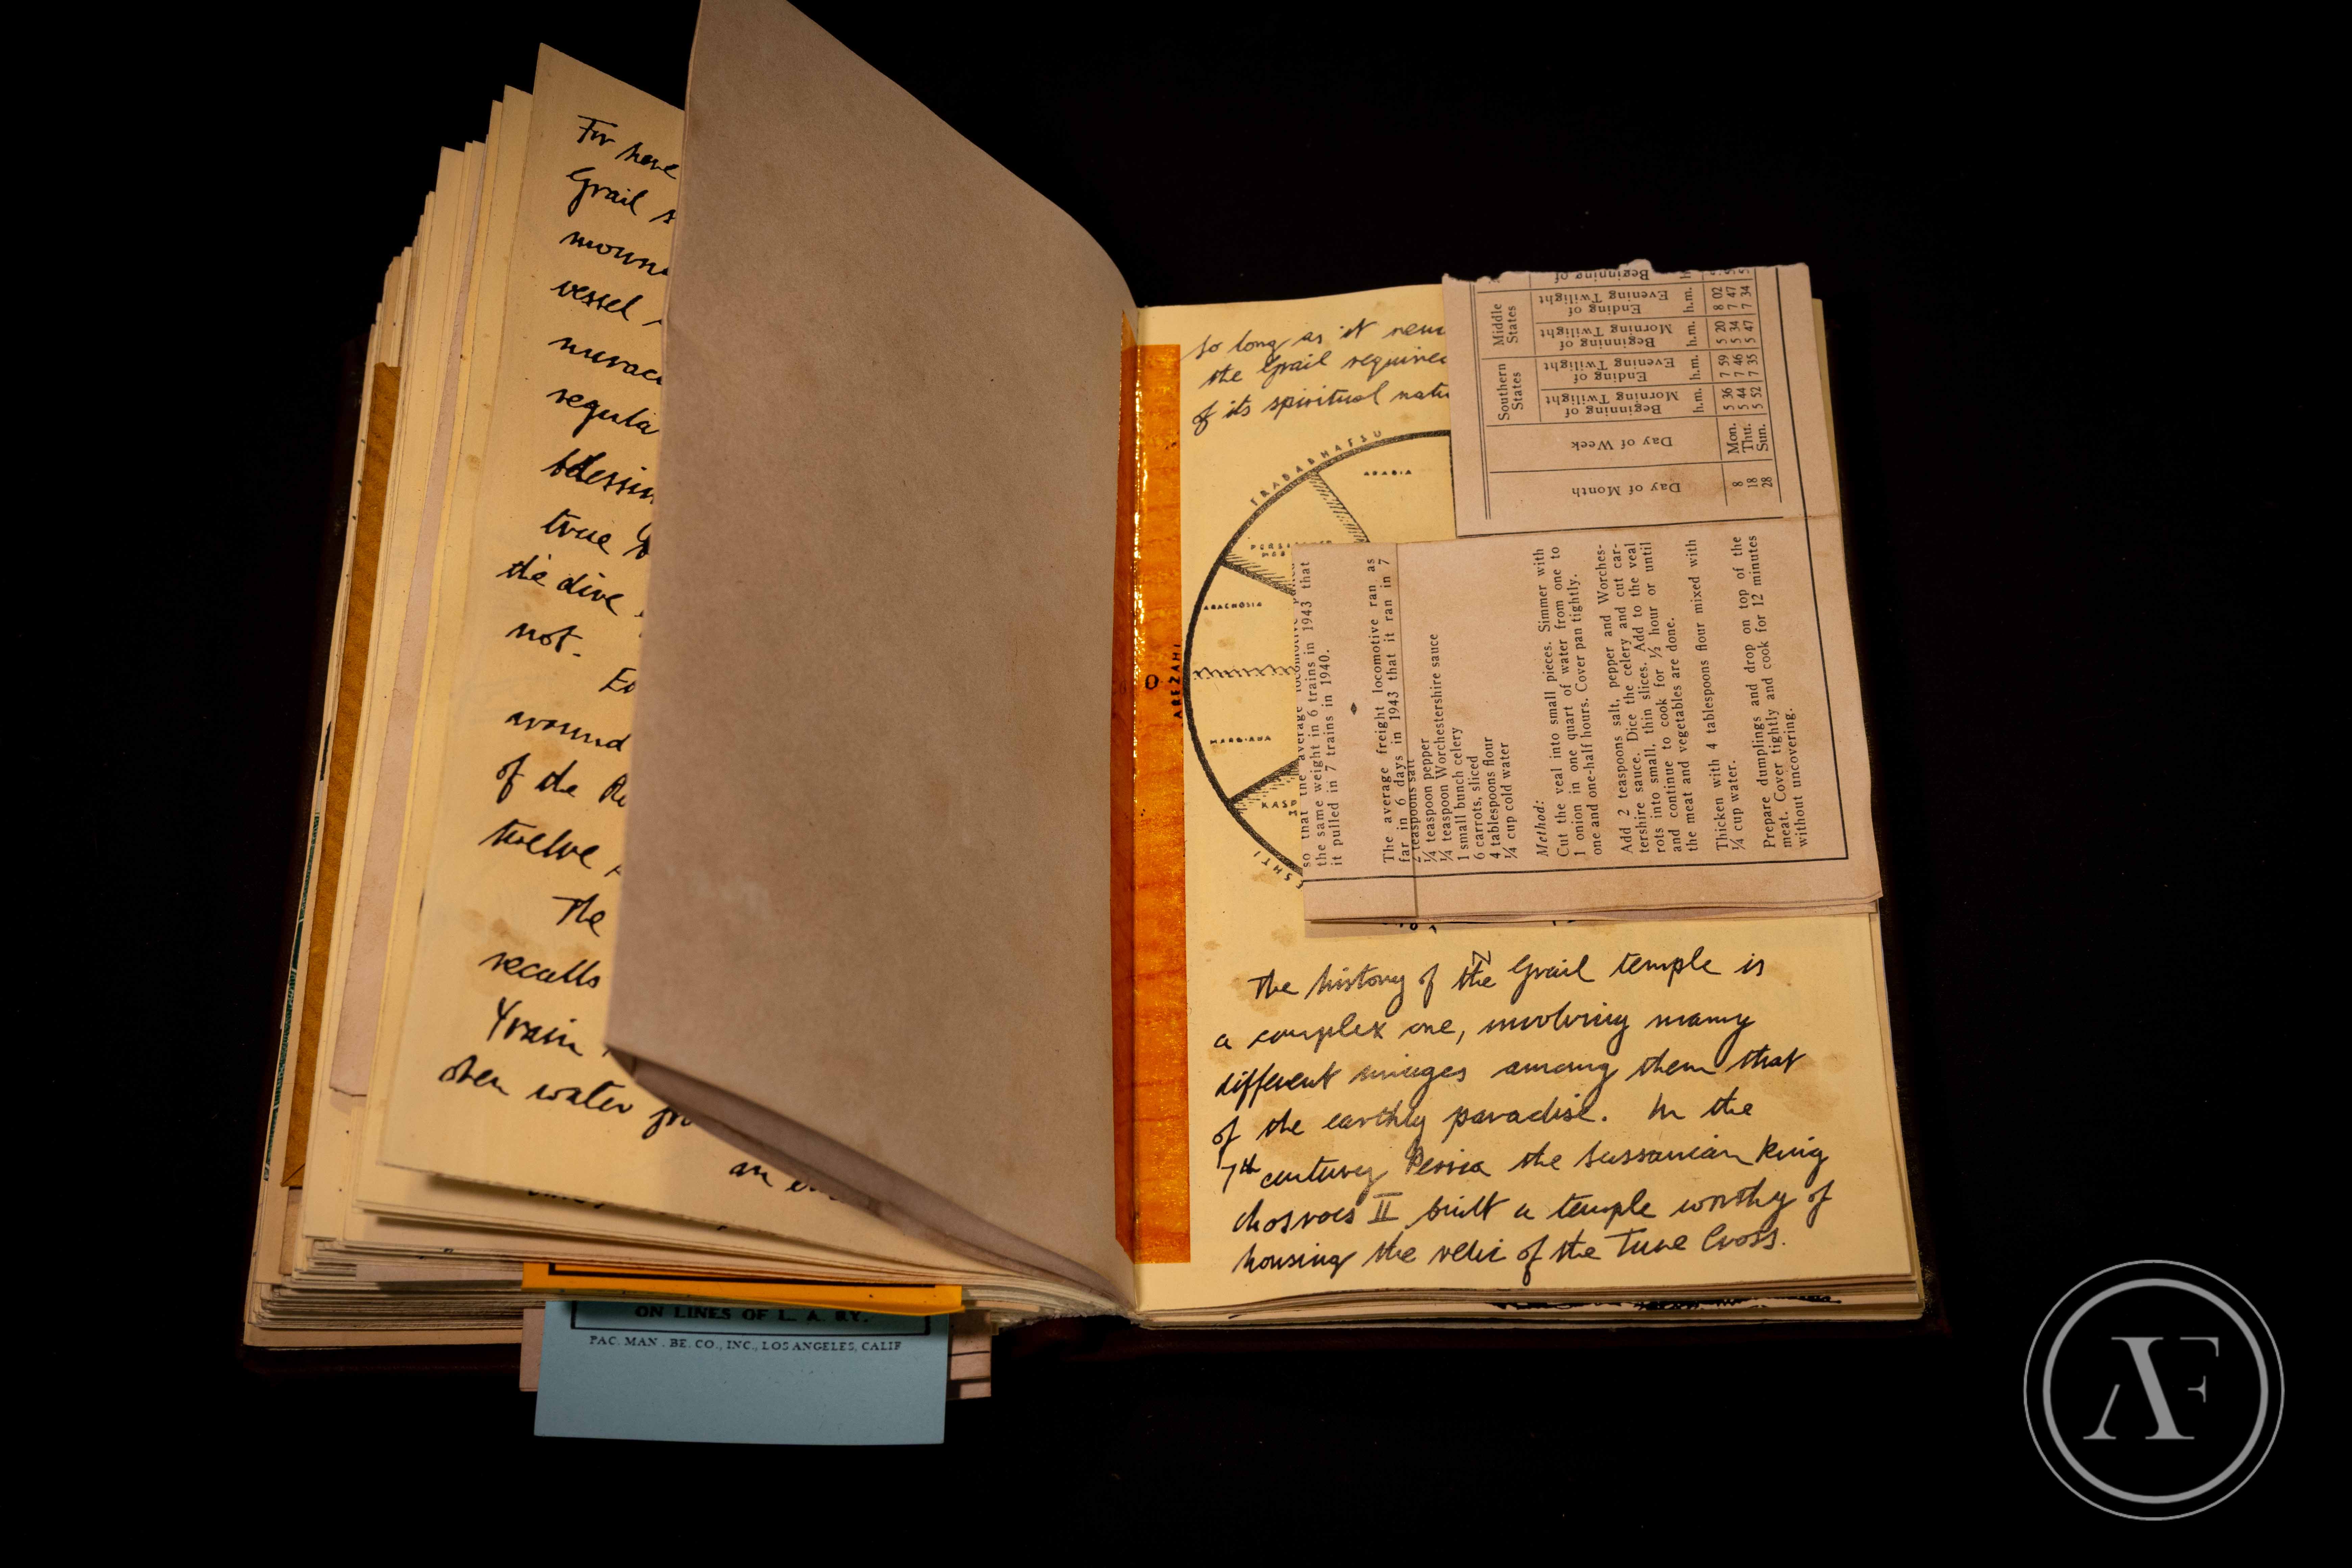 For here
Grail
moun
vessel
mirac
regula
blessin
true
the dive
not.
around
of the
twelve
The
recalls
Yrain
when water
an
ON LINES OF L. A. RY.
PAC. MAN . BE. CO., INC., LOS ANGELES, CALIF
so long as it rem
the Grail required
of its spiritual natu
TRADADHAFSU
ARABIA
ARACHOSIA
AREZAHI
O
MARGIANA
KASP
ESHTI
N
Southern States
Middle States
Day of Month
Day of Week
Beginning of Morning Twilight
Ending of Evening Twilight
Beginning of Morning Twilight
Ending of Evening Twilight
Beginning of
h.m. h.m. h.m. h.m. h
8 Mon. 5 36 7 59 5 20 8 02
18 Thu. 5 44 7 46 5 34 7 47
28 Sun. 5 52 7 35 5 47 7 34
so that the average locomotive pulled
the same weight in 6 trains in 1943 that
it pulled in 7 trains in 1940.
The average freight locomotive ran as
far in 6 days in 1943 that it ran in 7
2 teaspoons salt
¼ teaspoon pepper
¼ teaspoon Worchestershire sauce
1 small bunch celery
6 carrots, sliced
4 tablespoons flour
¼ cup cold water
Method:
Cut the veal into small pieces. Simmer with
1 onion in one quart of water from one to
one and one-half hours. Cover pan tightly.
Add 2 teaspoons salt, pepper and Worches-
tershire sauce. Dice the celery and cut car-
rots into small, thin slices. Add to the veal
and continue to cook for ½ hour or until
the meat and vegetables are done.
Thicken with 4 tablespoons flour mixed with
¼ cup water.
Prepare dumplings and drop on top of the
meat. Cover tightly and cook for 12 minutes
without uncovering.
The history of the Grail temple is
a complex one, involving many
different images among them that
of the earthly paradise. In the
7th century Persia the Sassanian King
Chosroes II built a temple worthy of
housing the relic of the True Cross.
AF